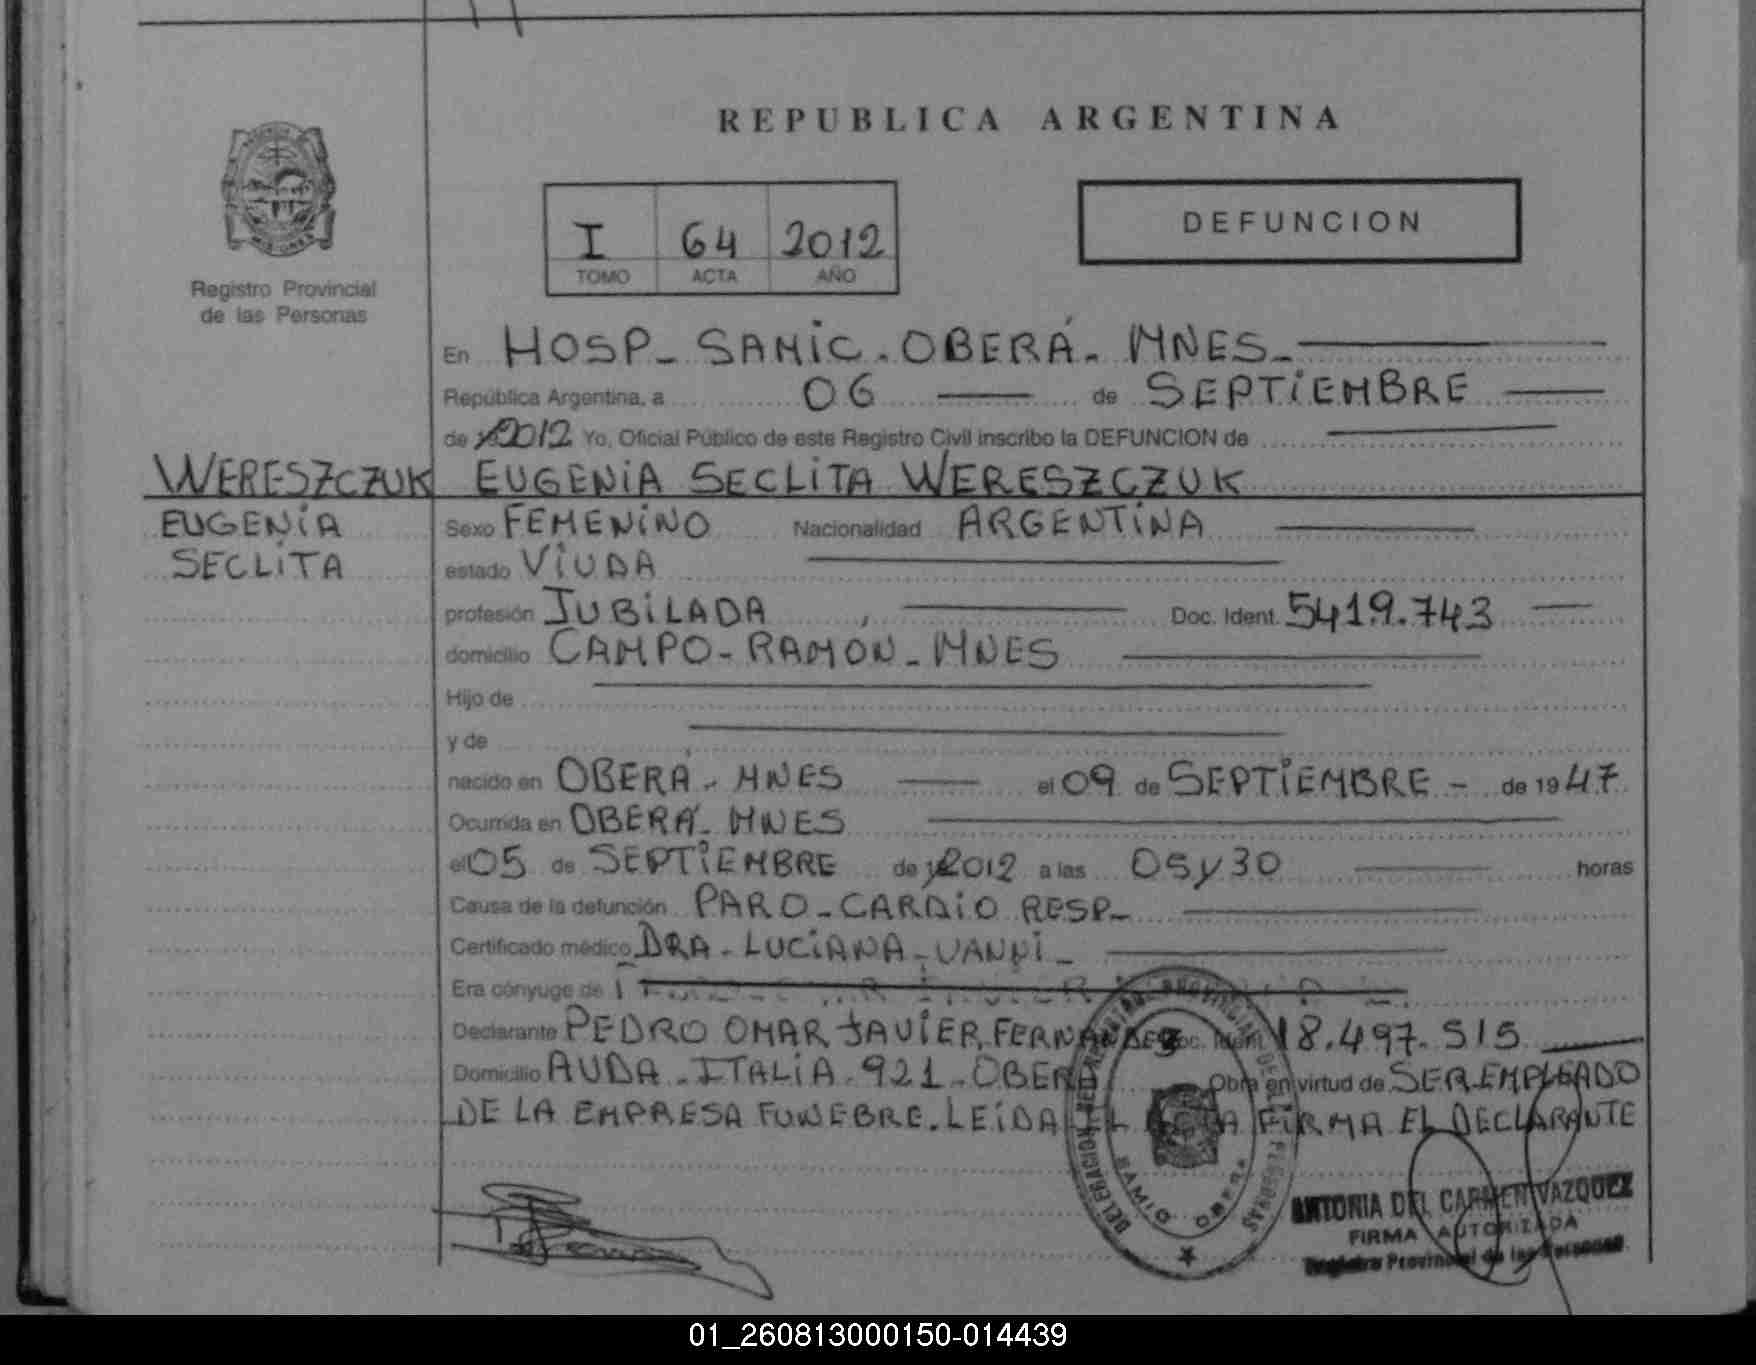 REPUBLICA ARGENTINA
Registro Provincial
de las Personas
I 64 2012
TOMO ACTA AÑO
DEFUNCION
En HOSP_ SAMIC. OBERÁ. MNES_
República Argentina, a 06 de SEPTIEMBRE
de 2012 Yo, Oficial Público de este Registro Civil inscribo la DEFUNCION de
WERESZCZUK EUGENIA SECLITA WERESZCZUK
EUGENIA
SECLITA
Sexo FEMENINO Nacionalidad ARGENTINA
estado VIUDA
profesión JUBILADA Doc. Ident. 5419.743
domicilio CAMPO-RAMON-MNES
Hijo de
y de
nacido en OBERÁ-MNES el 09 de SEPTIEMBRE - de 1947
Ocurrida en OBERÁ-MNES
el 05 de SEPTIEMBRE de 2012 a las 05y30 horas
Causa de la defunción PARO-CARDIO RESP_
Certificado médico DRA-LUCIANA-VANNI_
Era cónyuge de
Declarante PEDRO OMAR JAVIER FERNANDEZ Doc. Ident. 18.497.515
Domicilio AVDA-ITALIA-921-OBERÁ Obra en virtud de SER EMPLEADO
DE LA EMPRESA FUNEBRE. LEIDA EL ACTA FIRMA EL DECLARANTE
ANTONIA DEL CARMEN VAZQUEZ
FIRMA AUTORIZADA
Registro Provincial de las Personas
01_260813000150-014439